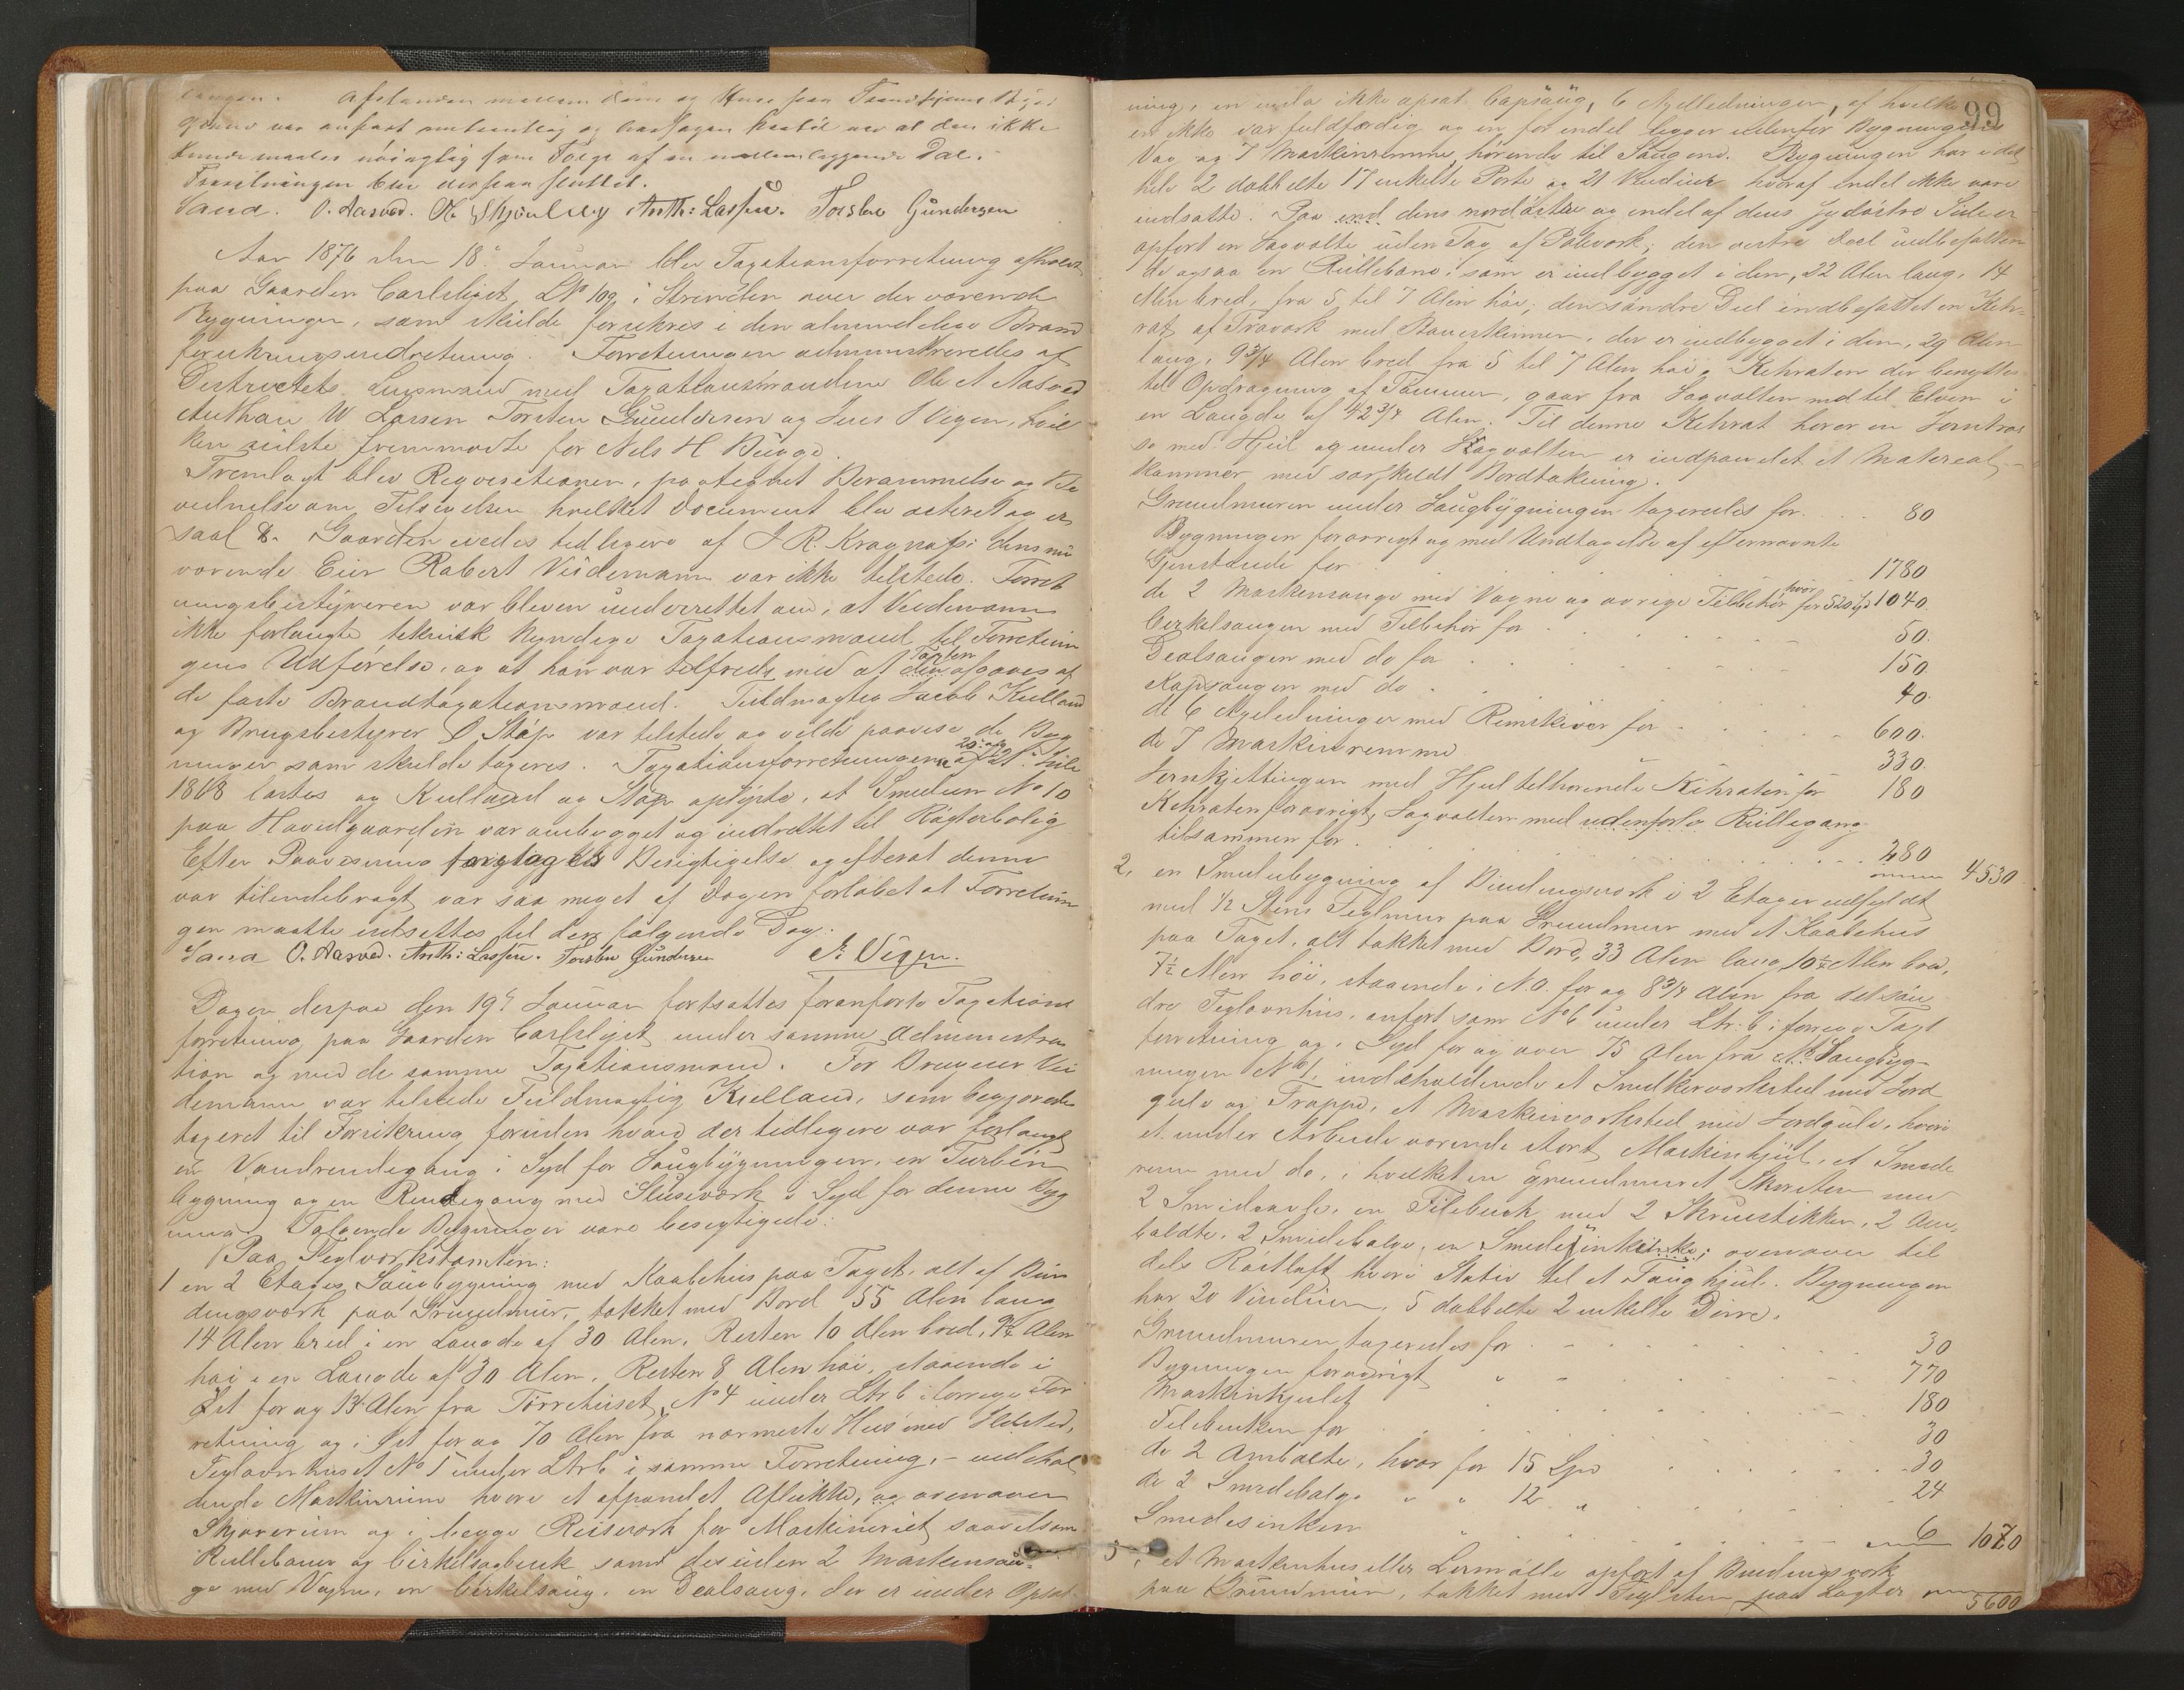 Afstanden mellem dem og Huse paa Trondhjems Byes
Grund var anført omtrentlig og var at den ikke
kunde maales nöiagtig som Følge af en mellemliggende Dal.
Forretningen blev derpaa sluttet.
Sand. O. Aasved. Anth: Lassen. Torsten Gundersen
Aar 1876 den 18. Januar blev Taxationsforretning afholdt
paa Gaarden Carlslyst LNo 109 i Strinden over der værende
Bygninger, som skulde forsikres i den almindelige Brand
forsikringsindretning. Forretningen administreredes af
Districtets Lensmand med Taxationsmændene Ole A Aasved
Anthon W Larsen Torsten Gundersen og Jens S Vegen, hvil
ken sidste fremmødte for Nels H Bugge.
Fremlagt blev Reqvisitionen, paategnet Berammelse og Be
vidnelse om Tilsigelsen hvilket Document blev acteret og er
saal &. Gaarden eiedes tidligere af J R. Kragnæss: dens nu
værende Eier Robert Veidemann var ikke tilstede. Forret
ningsbestyreren var bleven underrettet om, at Veidemann
ikke forlangte teknisk kyndige Taxationsmænd til Forretnin
gens Udførelse, og at han var tilfreds med at den afgaves af
Taxten
de faste Brandtaxationsmænd. Fuldmægtig Jacob Kielland
og Brugsbestyrer O Stäp var tilstede og vilde paavise de Byg
ninger som skulde taxeres. Taxationsforretningerne af 21 Juli
20: og
1868 læstes og Kielland og Stäp oplyste, at Smedien No 10
paa Hovedgaarden var ombygget og indrettet til Rögterbolig
Efter Paavisning foretoges Besigtigelse og efterat denne
var tilendebragt var saa meget af Dagen forløbet at Forretnin
gen maatte udsættes til den følgende Dag.
Sand O. Aasved. Anth: Lassen. Torsten Gundersen J. Vegen.
Dagen derpaa den 19de Januar fortsattes foranførte Taxations
forretning paa Gaarden Carlslyst under samme Administra
tion og med de samme Taxationsmænd. For Brugseier Vei
demann var tilstede Fuldmægtig Kielland, som begjærede
taxeret til Forsikring foruden hvad der tidligere var forlangt
en Vandrendegang i Syd for Saugbygningen, en Turbin
bygning og en Rendegang med Sluseværk i Syd for denne Byg
ning. Følgende Bygninger vare besigtigede:
Paa Teglværkstomten:
1 en 2 Etages Saugbygning med Kaabehus paa Taget, alt af Bin
dingsværk paa Grundmur, tækket med Bord 55 Alen lang
14 Alen bred i en Længde af 30 Alen, Resten 10 Alen bred, 9¾ Alen
høi i en Længde af 30 Alen, Resten 8 Alen høi, staaende i
Øst for og 13 Alen fra Tørrehuset No 4 under Ltr b i forrige For
retning og i Øst for og 70 Alen fra nærmeste Hus med Ildsted,
Teglovnhuset No 1 under Ltr b i samme Forretning, – indehol
dende Maskinrum hvori et afpanelet Aflukke, og ovenover
Skjærerum og i begge Reisværk for Maskineriet saavelsom
Rullebaner og Cirkelsagbænk samt desuden 2 Maskinsau-
ge med Vogne, en Cirkelsaug, en Dealsaug, der er under Opsæt
99
ning, en endn ikke opsat Capsaug, 6 Axelledninger, af hvilke
en ikke var fuldfærdig og en for endel ligger udenfor Bygningens
Væg og 7 Maskinremme hørende til Saugene. Bygningen har i det
hele 2 dobbelte 17 enkelte Porte og 21 Vinduer hvoraf endel ikke vare
indsatte. Paa end dens nordöstre og endel af dens sydöstre Side er
opført en Sagvolte uden Tag af Pæleværk; den vestre Deel indbefatten
de ogsaa en Rullebane som er indbygget i den, 22 Alen lang, 14
Alen bred, fra 5 til 7 Alen høi; den søndre Deel indbefattet en Keh-
rat af Træværk med Baneskinner, der er indbygget i den, 29 Alen
lang, 9¾ Alen bred fra 5 til 7 Alen høi. Kehraten der benyttes
til Opdragning af Tømmer, gaar fra Sagvolten ned til Elven i
en Længde af 42¾ Alen. Til denne Kehrat hører en Jerntros
se med Hjul og under Sagvolten er indpanelet et Material-
kammer med særskildt Bordtækning.
Grundmuren under Saugbygningen taxeredes for 80
Bygningen forøvrigt og med Undtagelse af efternævnte
Gjenstande for 1780
de 2 Maskinsauge med Vogne og øvrige Tilbehør hver for 520 Spd 1040
Cirkelsaugen med Tilbehør for 50.
Dealsaugen med do for 150
Kapsaugen med do 40.
de 6 Axeledninger med Remskiver for 600.
de 7 Maskinremme 330.
Jernkjettingen med Hjul tilhørende Kehraten for 180
Kehraten forøvrigt, Sagvolten med udenforlig Rullegang
tilsammen for 280 4530
2. en Smediebygning af Bindingsværk i 2 Etager udfyldt
med ½ Stens Teglmur paa Grundmur med et Kaabehus
paa Taget, alt tækket med Bord, 33 Alen lang, 10½ Alen bred,
7½ Alen høi, staaende i N.O. for og 8¾ Alen fra det søn
dre Teglovnhus, anført som No 6 under Ltr: b i forrige Taxt
forretning og i Syd for og over 75 Alen fra Saugbyg-
ningen No 1, indeholdende et Snedkerværksted med Jord
gulv og Trappe, et Maskinværksted med Jordgulv, hvori
et under Arbeide værende stort Maskinhjul, et Smede
rum med do, i hvilket en grundmuret Skorsten med
2 Smideavle, en Filebænk med 2 Skruestikker, 2 Am-
bolte, 2 Smidebælge, en Smedesinke; ovenover til
dels Röstloft hvori Stativ til et Taughjul. Bygningen
har 20 Vinduer, 5 dobbelte 2 enkelte Dørre.
Grundmuren taxeredes for 30
Bygningen forøvrigt " 770
Maskinhjulet 180
Filebænken for 30
de 2 Ambolte, hver for 15 Spd 30
de 2 Smedebælge " " 12 " 24
Smedesinken " 6 1070
3, et Maskinhus eller Lermølle opført af Bindingsværk
paa Grundmur, tækket med Teglsten paa Lægter
5600